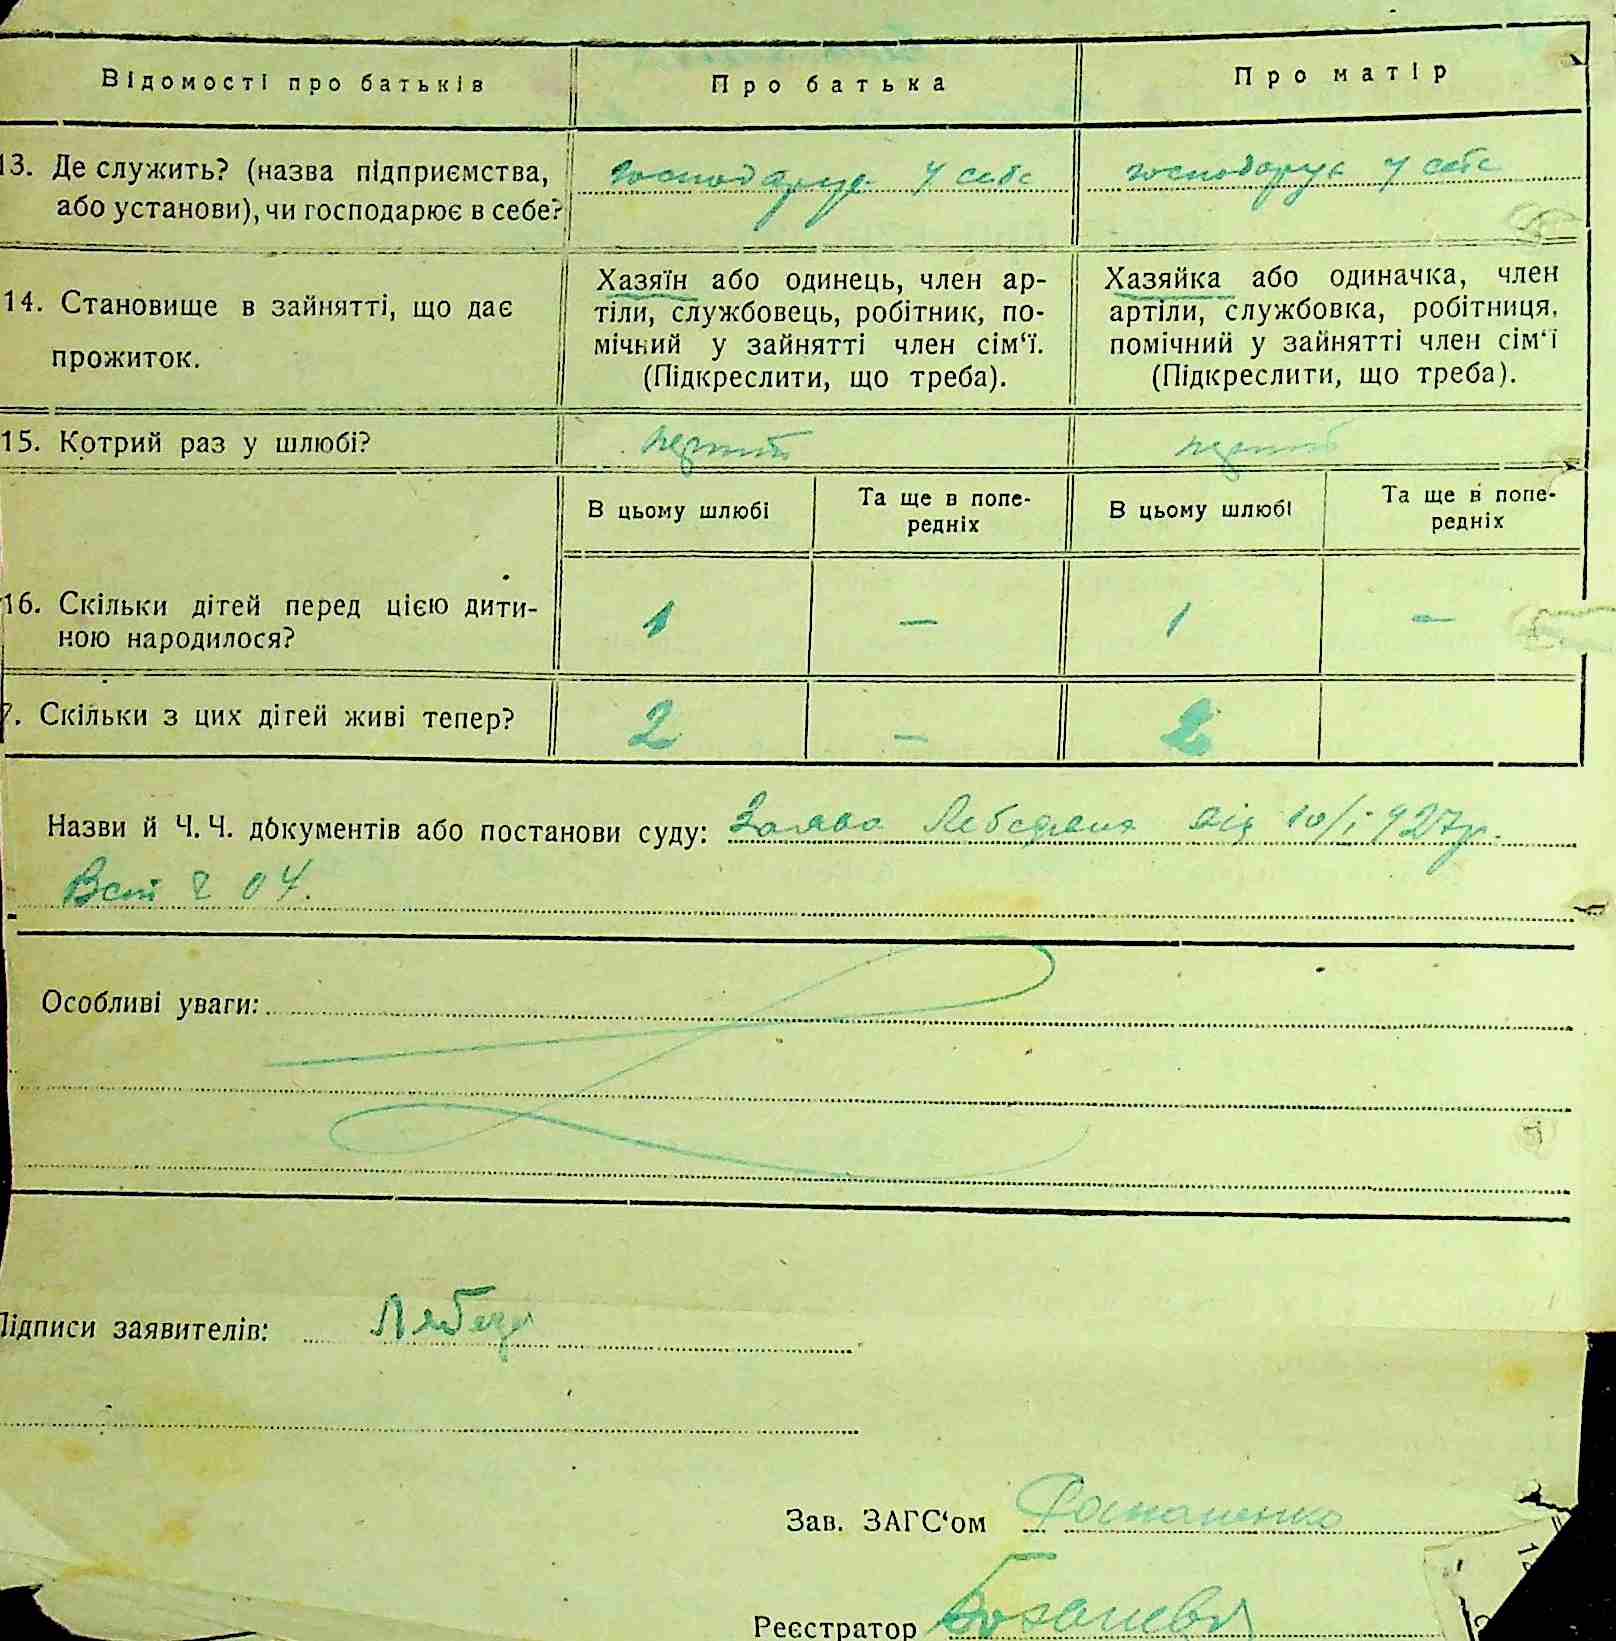 Відомості про батьків Про батька Про матір
13. Де служить? (назва підприємства, господарує у себе господарує у себе
або установи), чи господарює в себе?
14. Становище в зайнятті, що дає
прожиток.
Хазяїн або одинець, член ар-
тіли, службовець, робітник, по-
мічний у зайнятті член сім‘ї.
(Підкреслити, що треба).
Хазяйка або одиначка, член
артіли, службовка, робітниця,
помічний у зайнятті член сім‘ї
(Підкреслити, що треба).
15. Котрий раз у шлюбі? перший перший
В цьому шлюбі
Та ще в попе-
редніх
В цьому шлюбі
Та ще в попе-
редніх
16. Скільки дітей перед цією дити- 1 — 1 —
ною народилося?
7. Скільки з цих дітей живі тепер? 2 — 2
Назви й Ч. Ч. документів або постанови суду: Заява від 10/I 1927р.
04.
Особливі уваги:
Підписи заявителів:
Зав. ЗАГС‘ом
Реєстратор